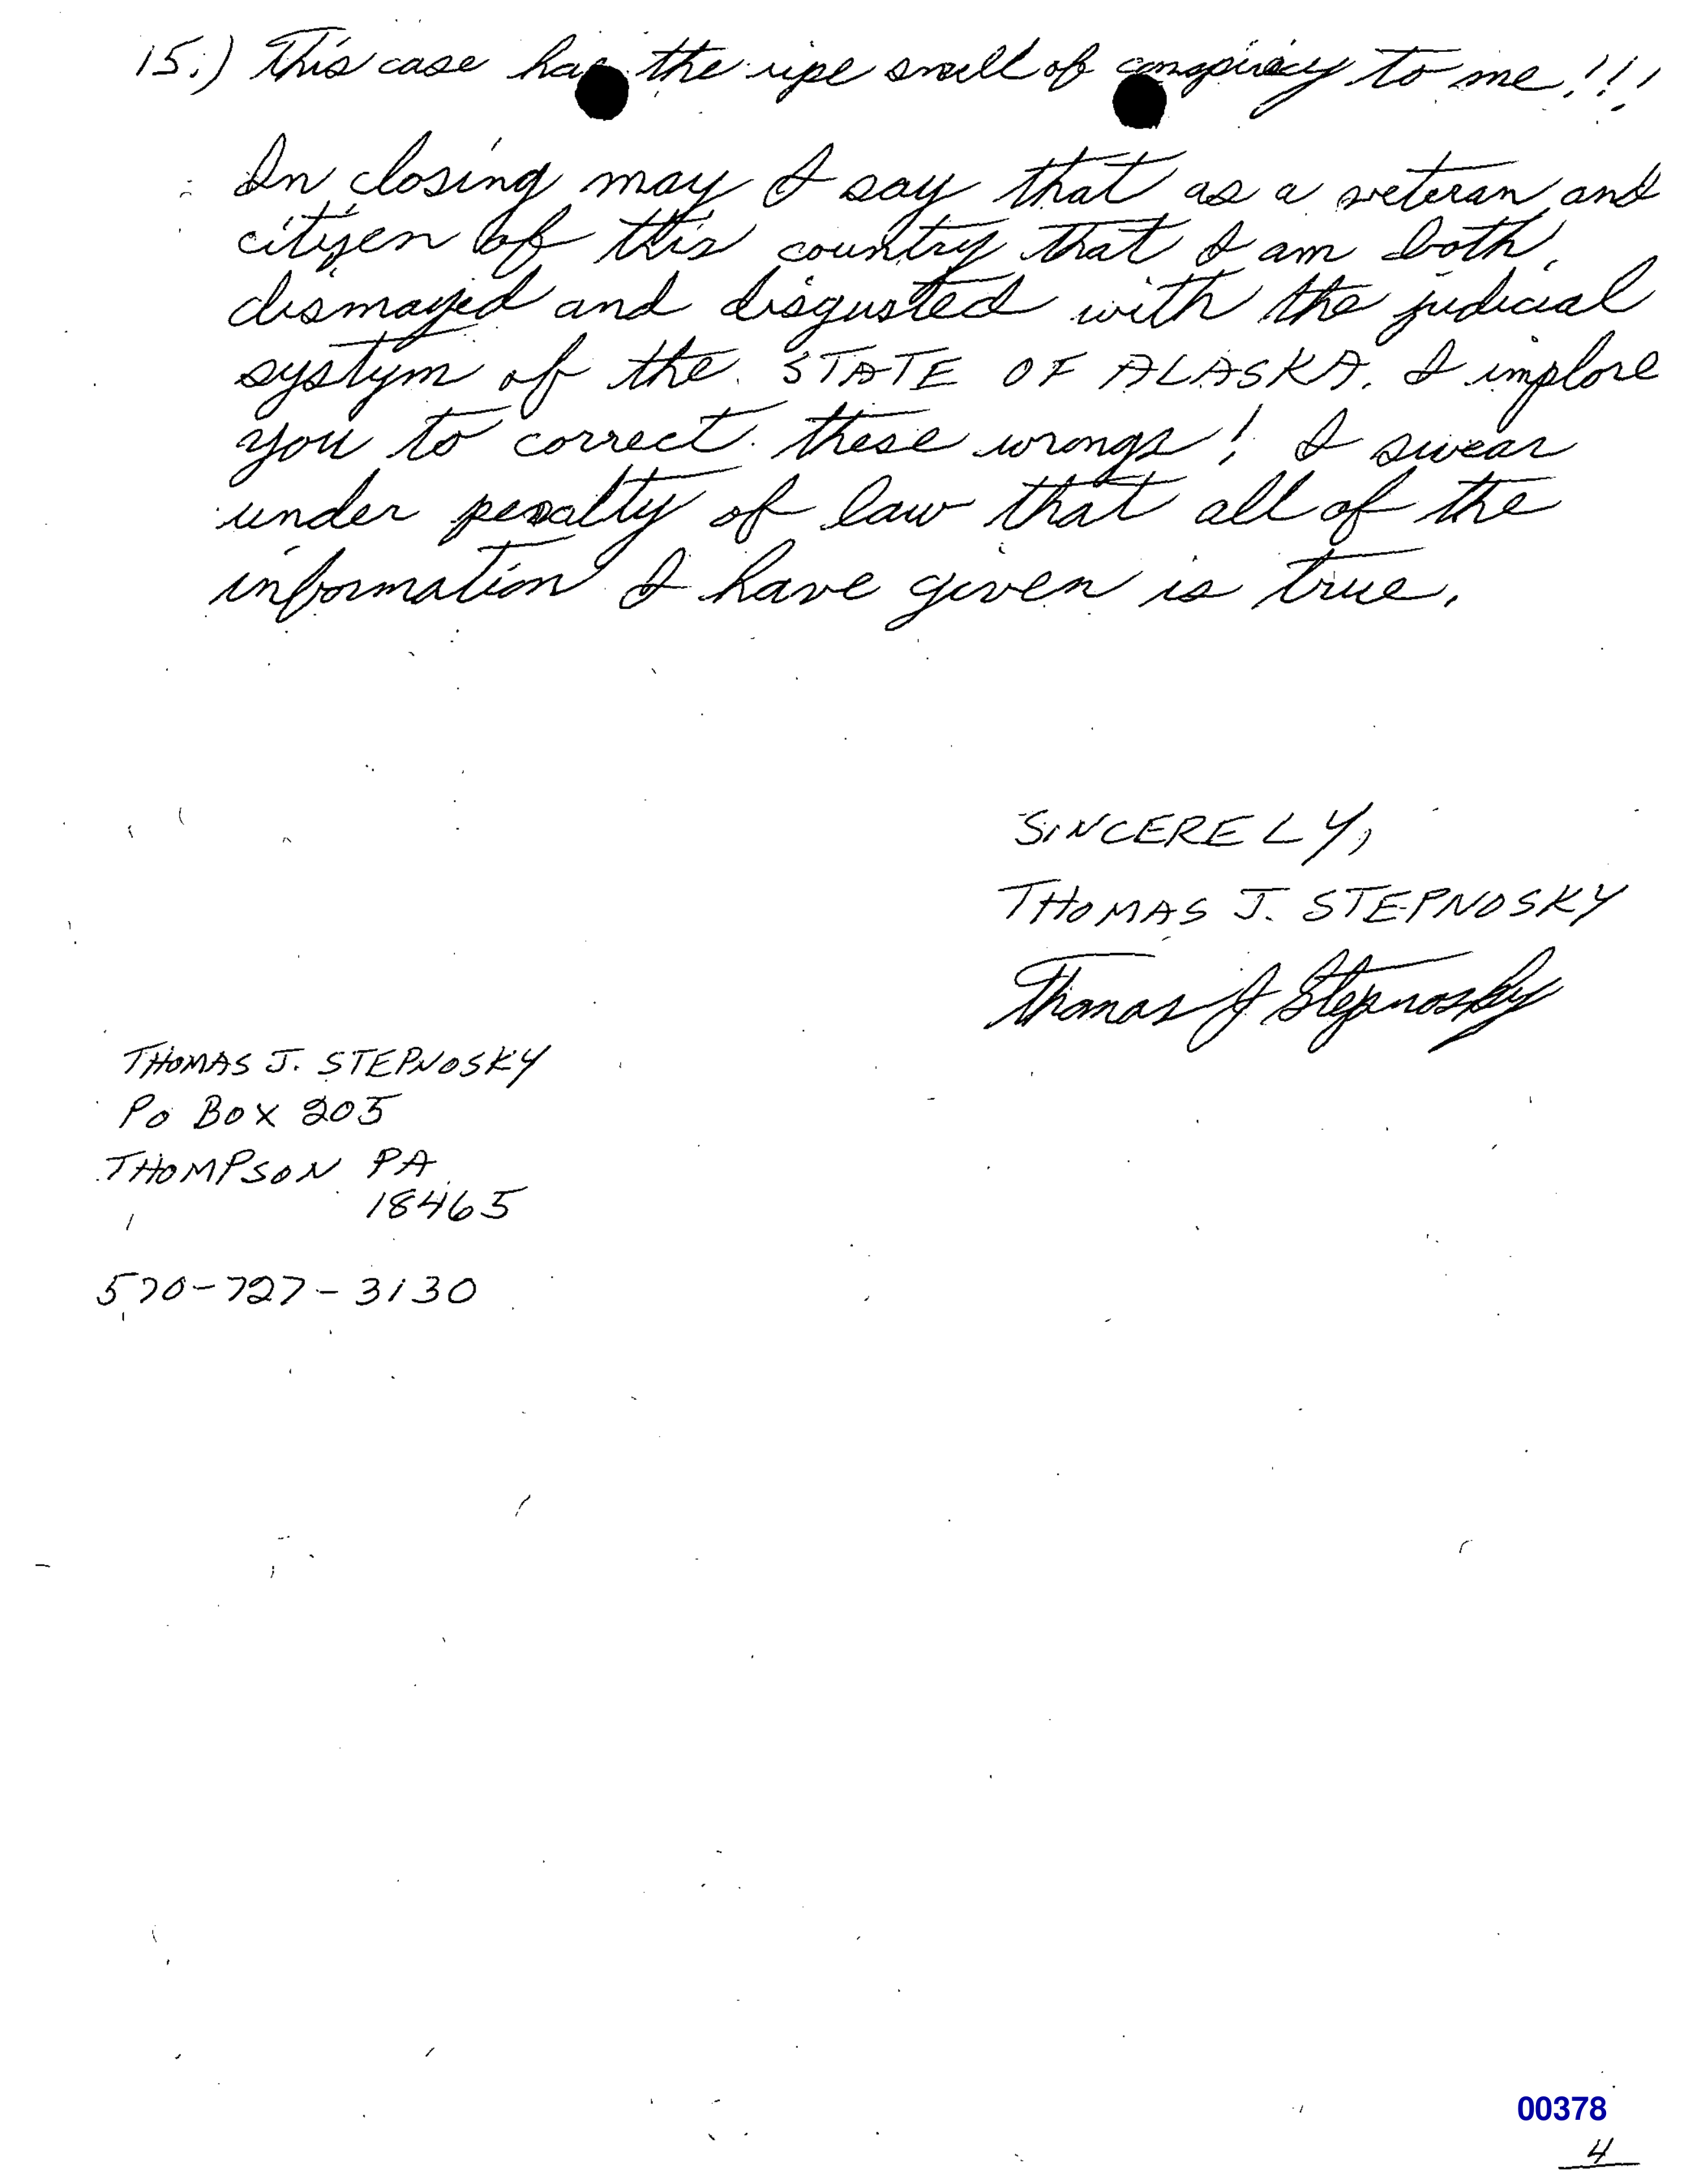 15.) This case has the ripe smell of conspiricy to me!!!
In closing may I say that as a veteran and
citizen of this country that I am both
dismayed and disgusted with the judicial
systym of the STATE OF ALASKA. I implore
you to correct these wrongs! I swear
under penalty of law that all of the
information I have given is true.
SINCERELY,
THOMAS J. STEPNOSKY
Thomas J Stepnosky
THOMAS J. STEPNOSKY
PO BOX 205
THOMPSON PA
18465
570-727-3130
00378
4